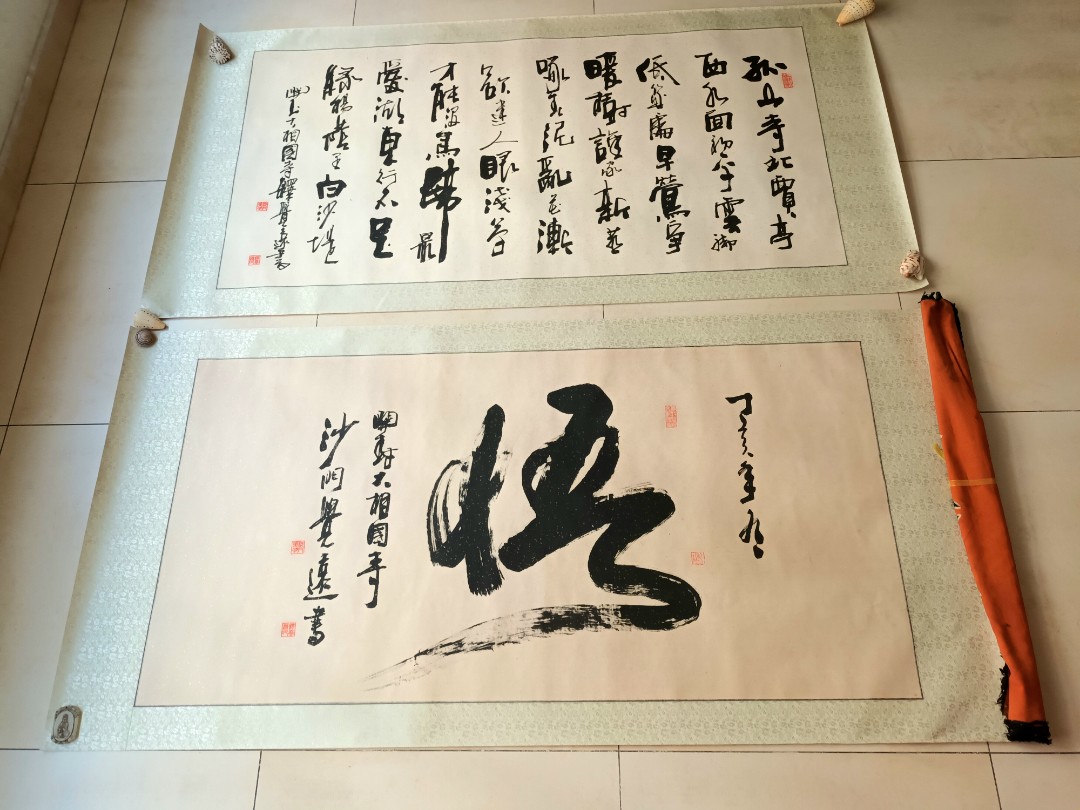 孤山寺北賈亭
西水面初平雲脚
低幾處早鶯爭
暖樹誰家新燕
啄春泥亂花漸
欲迷人眼淺草
才能沒馬蹄最
愛湖東行不足
綠楊陰里白沙堤
大相國寺釋覺遠書
丁亥年
悟
開封大相國寺
沙門覺遠書